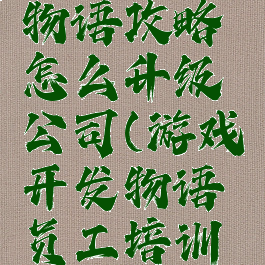 物语攻略
怎么升级
公司(游戏
开发物语
员工培训